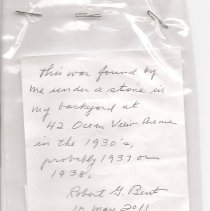 This was found by
me under a stone in
my backyard at
42 Ocean View Avenue
in the 1930's,
probably 1937 or
1938.
Robert G. Bent
10 May 2011